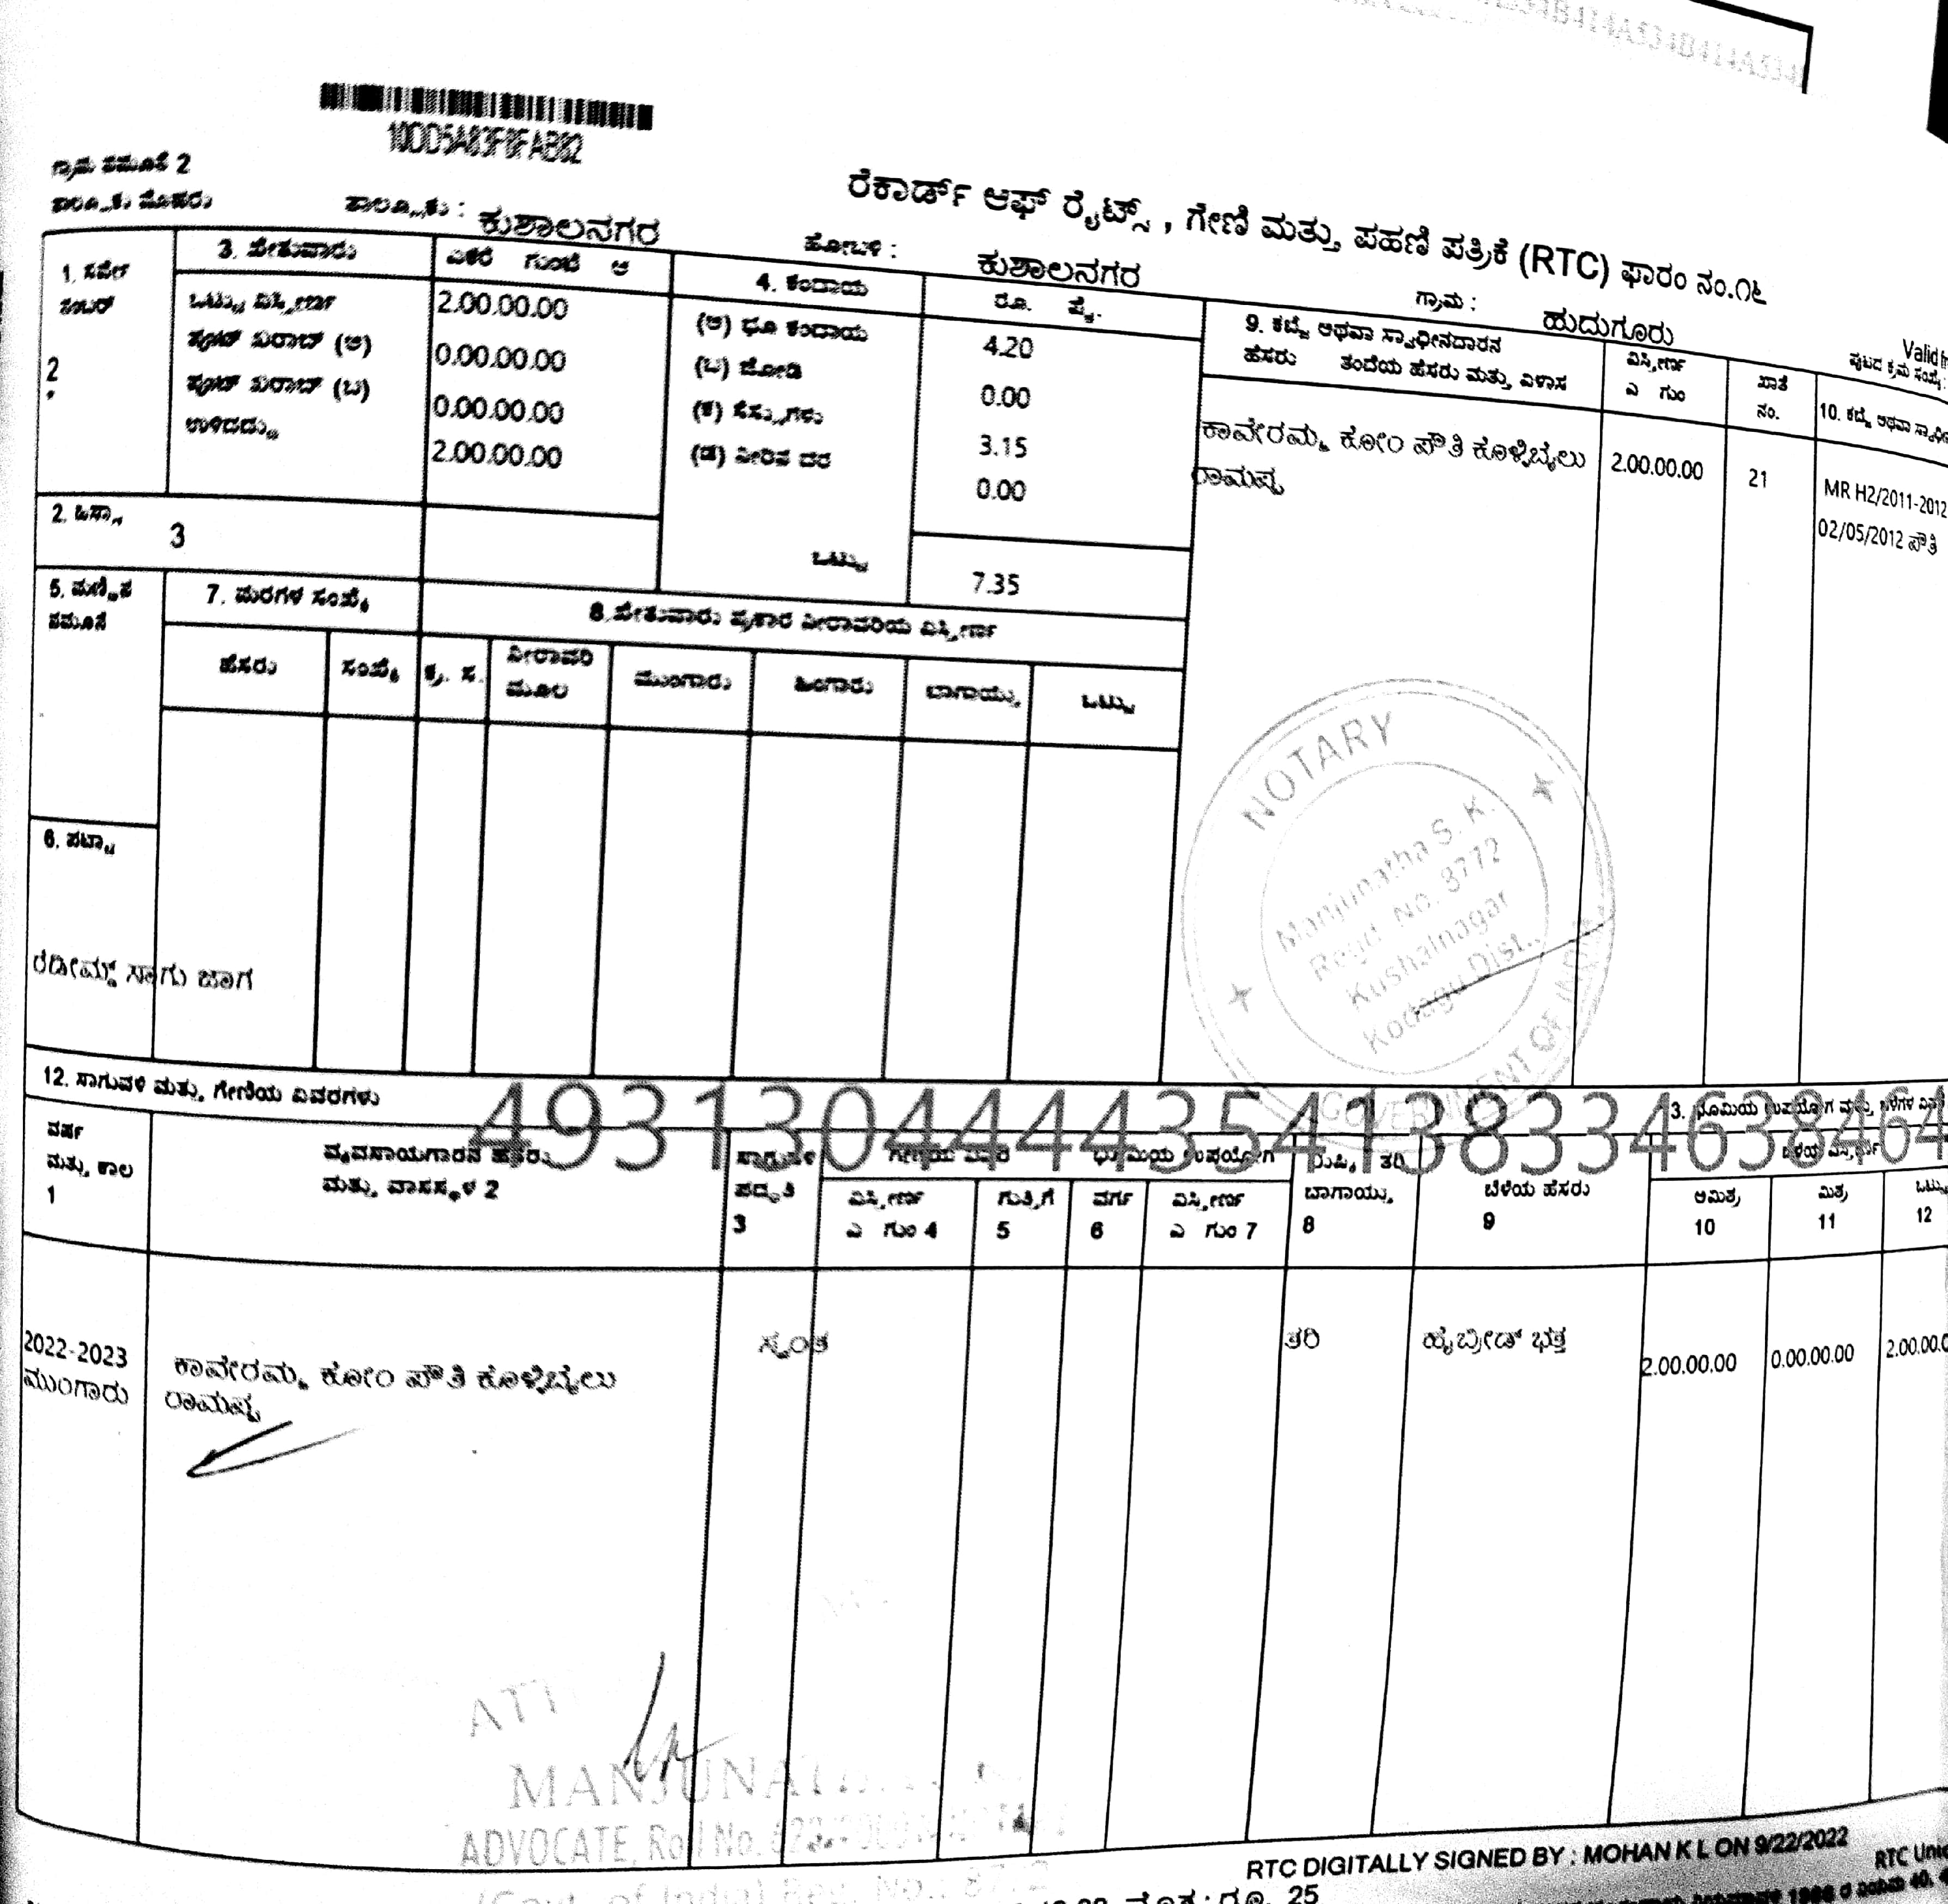 10DD5A83F8FAB82
ಗ್ರಾಮ ನಮೂನೆ 2
ತಾಲ್ಲೂಕು :
ಕುಶಾಲನಗರ
ರೆಕಾರ್ಡ್ ಆಫ್ ರೈಟ್ಸ್ , ಗೇಣಿ ಮತ್ತು ಪಹಣಿ ಪತ್ರಿಕೆ (RTC) ಫಾರಂ ನಂ.೧೬
ಹೋಬಳಿ :
ಕುಶಾಲನಗರ
ಗ್ರಾಮ :
ಹುದುಗೂರು
Valid
ಪುಟದ ಕ್ರಮ ಸಂಖ್ಯೆ :
1. ಸರ್ವೆ ನಂಬರ್
2
*
3. ಖೇತುವಾರು
ಎಕರೆ ಗುಂಟೆ ಆ
ಒಟ್ಟು ವಿಸ್ತೀರ್ಣ 2.00.00.00
ಪೂಟ್ ಖರಾಬ್ (ಅ) 0.00.00.00
ಪೂಟ್ ಖರಾಬ್ (ಬ) 0.00.00.00
ಉಳಿದದ್ದು 2.00.00.00
4. ಕಂದಾಯ
ರೂ. ಪೈ.
(ಅ) ಭೂ ಕಂದಾಯ 4.20
(ಬ) ಜೋಡಿ 0.00
(ಕ) ಸೆಸ್ಸುಗಳು 3.15
(ಡ) ನೀರಿನ ದರ 0.00
ಒಟ್ಟು 7.35
9. ಕಬ್ಜೆ ಅಥವಾ ಸ್ವಾಧೀನದಾರನ
ಹೆಸರು ತಂದೆಯ ಹೆಸರು ಮತ್ತು ವಿಳಾಸ
ವಿಸ್ತೀರ್ಣ
ಎ ಗುಂ
ಖಾತೆ
ನಂ.
10. ಕಬ್ಜೆ ಅಥವಾ
ಕಾವೇರಮ್ಮ ಕೋಂ ಪೌತಿ ಕೊಳ್ಳಿಬೈಲು
ರಾಮಪ್ಪ
2.00.00.00
21
MR H2/2011-2012
02/05/2012 ಪೌತಿ
2. ಹಿಸ್ಸಾ
3
5. ಮಣ್ಣಿನ
ನಮೂನೆ
7. ಮರಗಳ ಸಂಖ್ಯೆ
8.ಖೇತುವಾರು ಪ್ರಕಾರ ನೀರಾವರಿಯ ವಿಸ್ತೀರ್ಣ
ಹೆಸರು
ಸಂಖ್ಯೆ
ಕ್ರ. ಸ.
ನೀರಾವರಿ
ಮೂಲ
ಮುಂಗಾರು
ಹಿಂಗಾರು
ಬಾಗಾಯ್ತು
ಒಟ್ಟು
6. ಪಟ್ಟಾ
ರೆಡೀಮ್ಡ್ ಸಾಗು ಜಾಗ
NOTARY
Manjunatha S. K.
Regd. No. 8772
Kushalnagar
Kodagu Dist.
GOVERNMENT OF INDIA
12. ಸಾಗುವಳಿ ಮತ್ತು ಗೇಣಿಯ ವಿವರಗಳು
4931304444354138334638464
ವರ್ಷ
ಮತ್ತು ಕಾಲ
1
ವ್ಯವಸಾಯಗಾರನ ಹೆಸರು
ಮತ್ತು ವಾಸಸ್ಥಳ 2
ಸಾಗುವಳಿ
ಪದ್ಧತಿ
3
ವಿಸ್ತೀರ್ಣ
ಎ ಗುಂ 4
ಗುತ್ತಿಗೆ
5
ಭೂಮಿಯ ಉಪಯೋಗ
ವರ್ಗ
6
ವಿಸ್ತೀರ್ಣ
ಎ ಗುಂ 7
ತರಿ
ಬಾಗಾಯ್ತು
8
ಬೆಳೆಯ ಹೆಸರು
9
ಅಮಿಶ್ರ
10
ಮಿಶ್ರ
11
ಒಟ್ಟು
12
2022-2023
ಮುಂಗಾರು
ಕಾವೇರಮ್ಮ ಕೋಂ ಪೌತಿ ಕೊಳ್ಳಿಬೈಲು
ರಾಮಪ್ಪ
ಸ್ವಂತ
ತರಿ
ಹೈಬ್ರೀಡ್ ಭತ್ತ
2.00.00.00
0.00.00.00
2.00.00.0
ADVOCATE, Roll No.
RTC DIGITALLY SIGNED BY : MOHAN K L ON 9/22/2022
ರೂ. 25